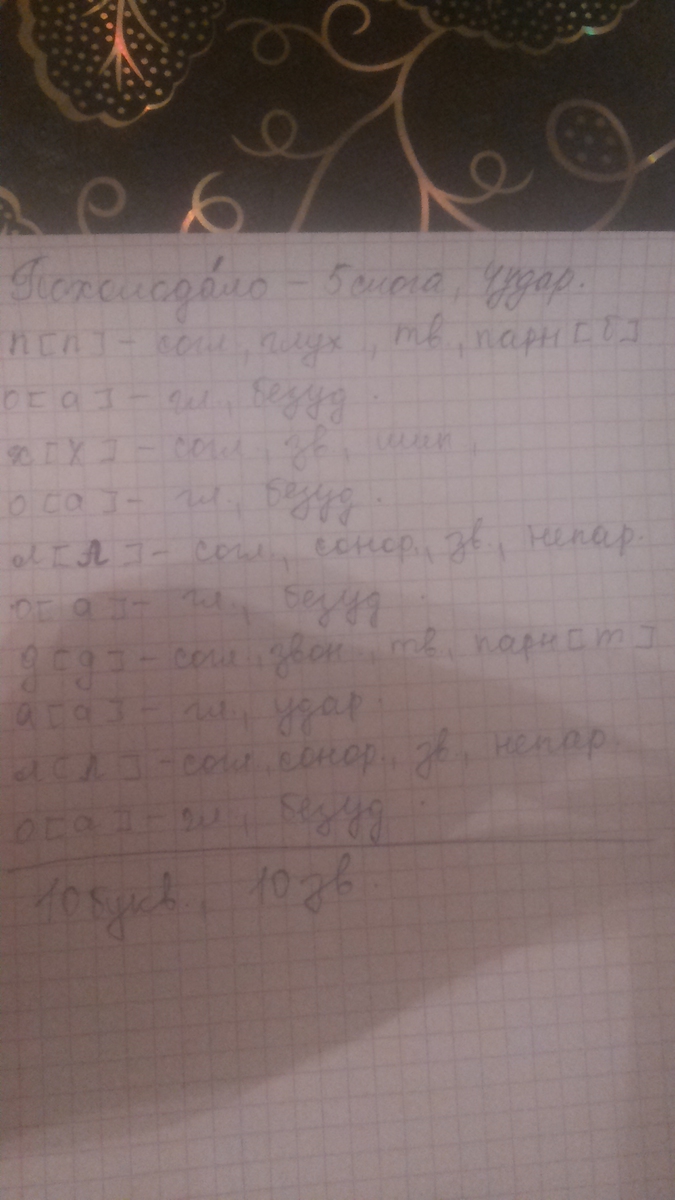 Похолода́ло – 5 слога, 4 удар.
п [п] – согл, глух, тв, парн [б]
о [а] – гл., безуд.
х [х] – согл, зв, шип,
о [а] – гл., безуд.
л [л] – согл., сонор., зв., непар.
о [а] – гл., безуд.
д [д] – согл, звон, тв, парн [т]
а [а] – гл., удар.
л [л] – согл, сонор., зв, непар.
о [а] – гл, безуд.
10 букв., 10 зв.